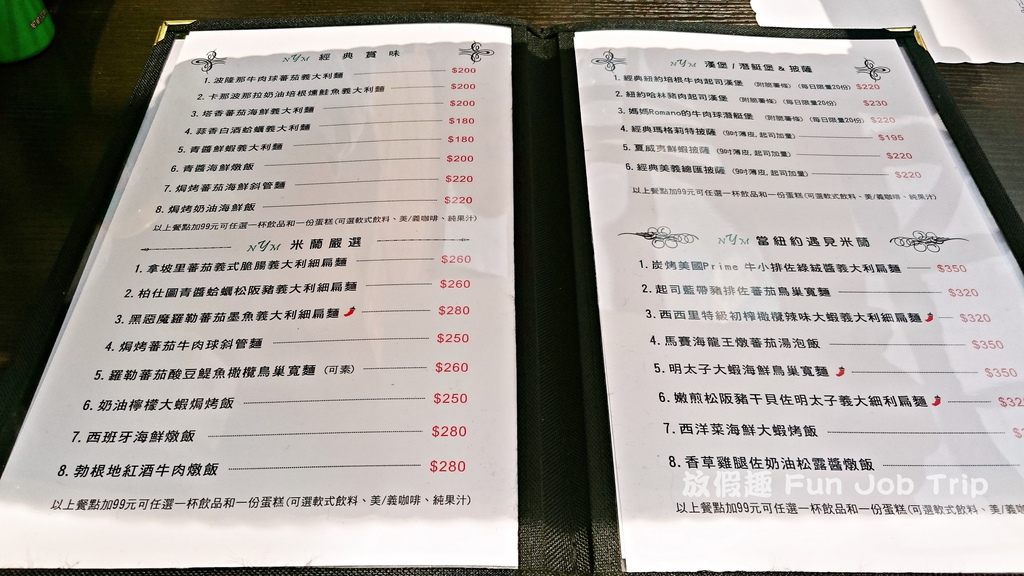 NYM 經典賞味
1. 波隆那牛肉球蕃茄義大利麵 $200
2. 卡那波那拉奶油培根燻鮭魚義大利麵 $200
3. 塔香蕃茄海鮮義大利麵 $200
4. 蒜香白酒蛤蠣義大利麵 $180
5. 青醬鮮蝦義大利麵 $180
6. 青醬海鮮燉飯 $200
7. 焗烤蕃茄海鮮斜管麵 $220
8. 焗烤奶油海鮮飯 $220
以上餐點加99元可任選一杯飲品和一份蛋糕(可選軟式飲料、美/義咖啡、純果汁)
NYM 米蘭嚴選
1. 拿坡里蕃茄義式脆腸義大利細扁麵 $260
2. 柏仕圖青醬蛤蠣松阪豬義大利細扁麵 $260
3. 黑惡魔羅勒蕃茄墨魚義大利細扁麵 $280
4. 焗烤蕃茄牛肉球斜管麵 $250
5. 羅勒蕃茄酸豆鯷魚橄欖鳥巢寬麵 (可素) $260
6. 奶油檸檬大蝦焗烤飯 $250
7. 西班牙海鮮燉飯 $280
8. 勃根地紅酒牛肉燉飯 $280
以上餐點加99元可任選一杯飲品和一份蛋糕(可選軟式飲料、美/義咖啡、純果汁)
NYM 漢堡/潛艇堡 & 披薩
1. 經典紐約培根牛肉起司漢堡 (附脆薯條) (每日限量20份) $220
2. 紐約哈林豬肉起司漢堡 (附脆薯條) (每日限量20份) $230
3. 媽媽Romano的牛肉球潛艇堡 (附脆薯條) (每日限量20份) $220
4. 經典瑪格莉特披薩 (9吋薄皮,起司加量) $195
5. 夏威夷鮮蝦披薩 (9吋薄皮,起司加量) $220
6. 經典美義總匯披薩 (9吋薄皮,起司加量) $220
以上餐點加99元可任選一杯飲品和一份蛋糕(可選軟式飲料、美/義咖啡、純果汁)
NYM 當紐約遇見米蘭
1. 炭烤美國Prime 牛小排佐綠絨醬義大利扁麵 $350
2. 起司藍帶豬排佐蕃茄鳥巢寬麵 $320
3. 西西里特級初榨橄欖辣味大蝦義大利細扁麵 $320
4. 馬賽海龍王燉蕃茄湯泡飯 $350
5. 明太子大蝦海鮮鳥巢寬麵 $350
6. 嫩煎松阪豬干貝佐明太子義大細利扁麵 $32
7. 西洋菜海鮮大蝦烤飯
8. 香草雞腿佐奶油松露醬燉飯
以上餐點加99元可任選一杯飲品和一份蛋糕(可選軟式飲料、美/義咖
放假趣 Fun Job Trip